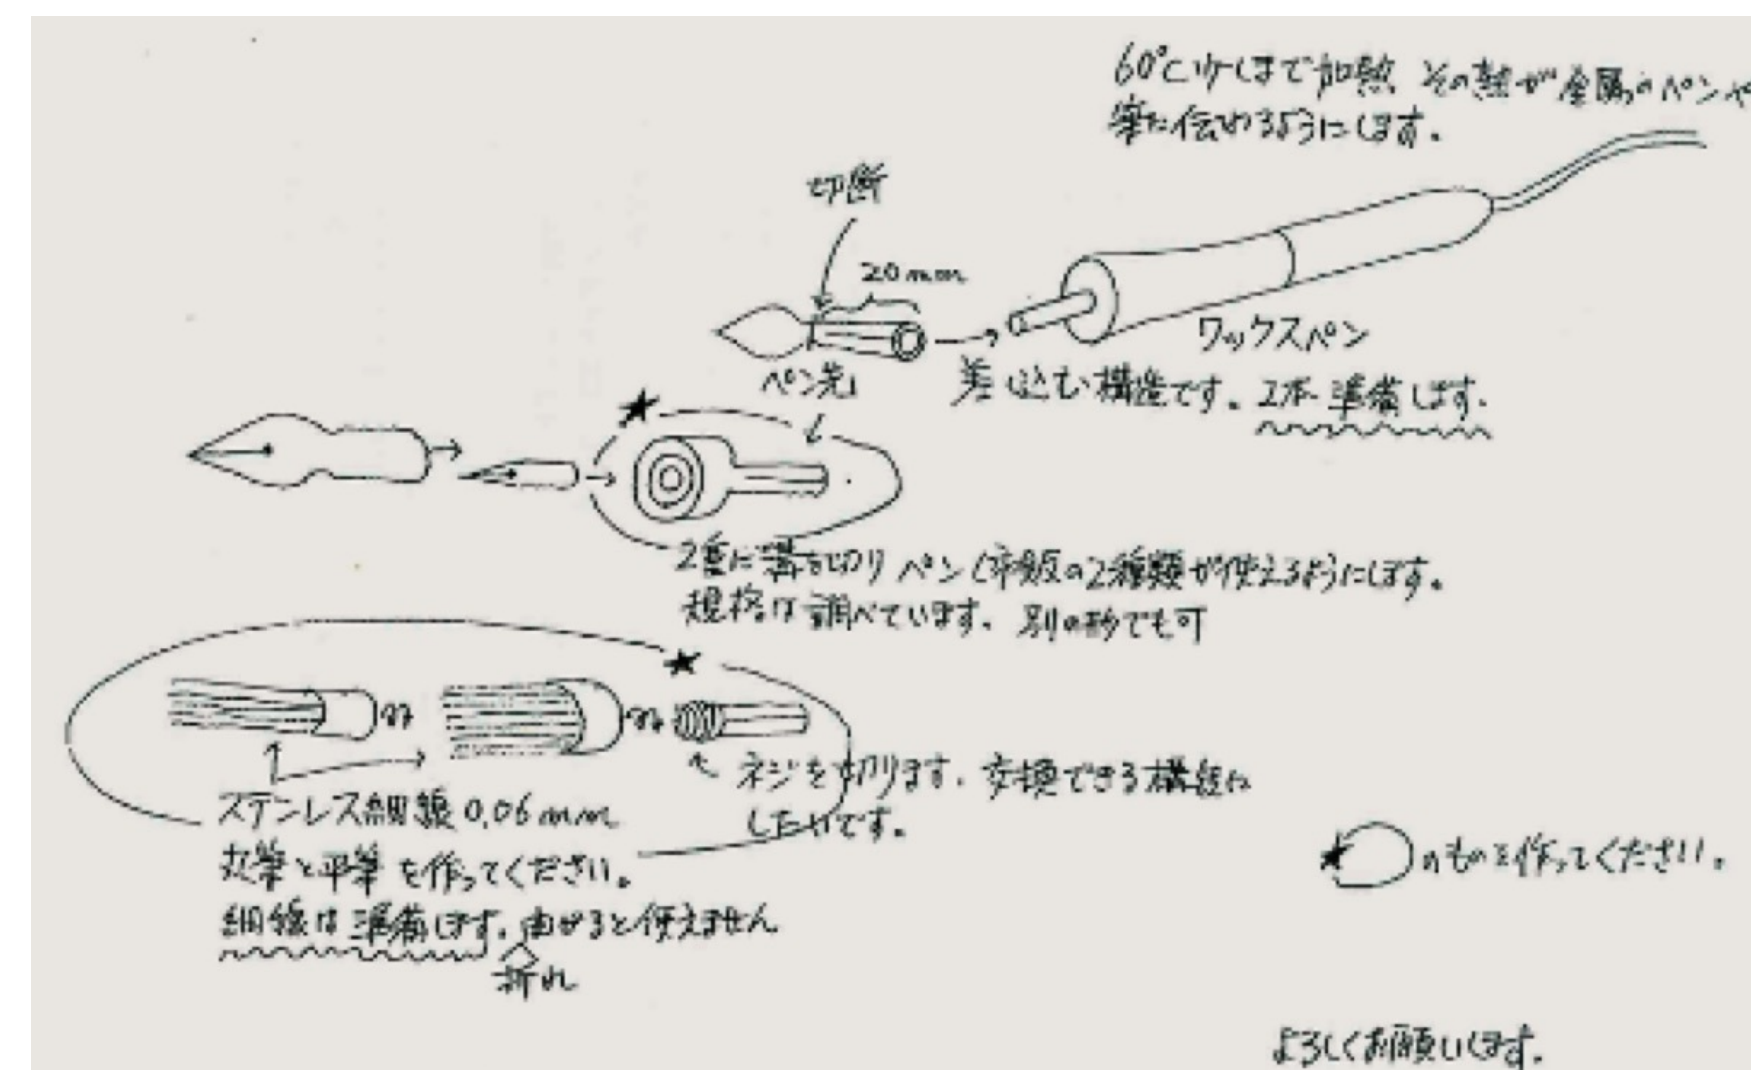 60℃ 加熱 その熱が金属のペンや
筆に伝わるようにします。
切断
20mm
ワックスペン
ペン先
差し込む構造です。2本準備します。
★
2重に溝を切りペン(市販の2種類が使えるようにします。
規格は調べています。別の形でも可
★
ネジを切ります。交換できる構造に
したいです。
ステンレス細線0.06mm
丸筆と平筆を作ってください。
細線は準備します。曲がると使えません
折れ
★ のものを作ってください。
よろしくお願いします。